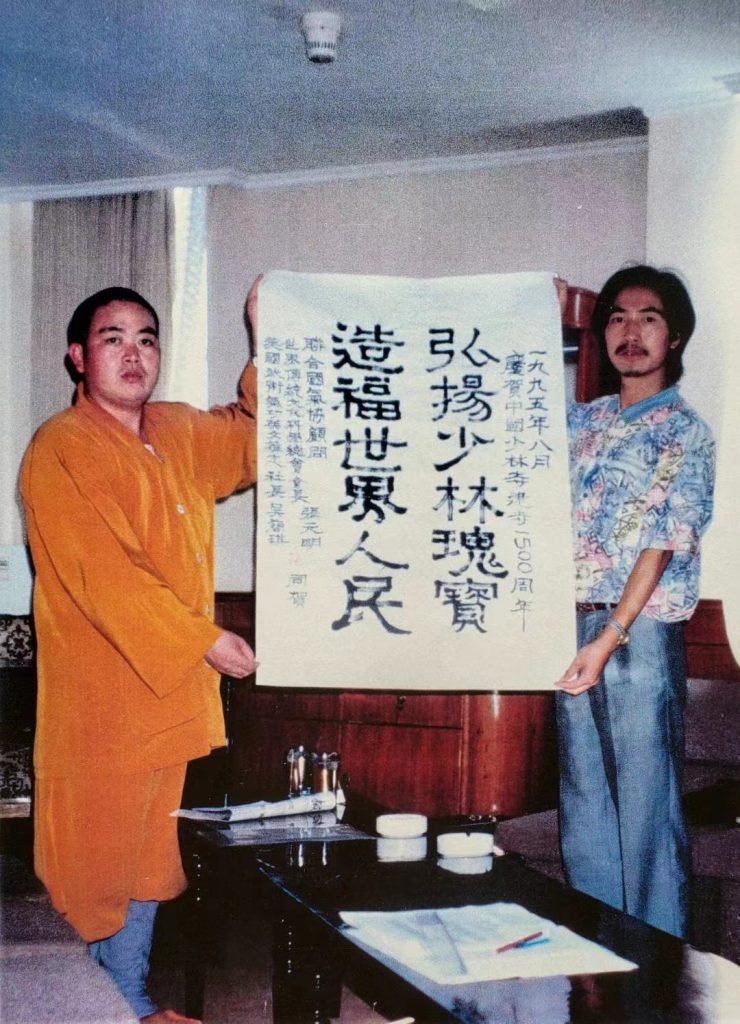 一九九五年八月
慶賀中國少林寺建寺1500周年
弘揚少林瑰寶
造福世界人民
聯合國氣協顧問
世界傳統文化科學總會會長 張元明
美國武術氣功英文雜志社長 吳
同賀